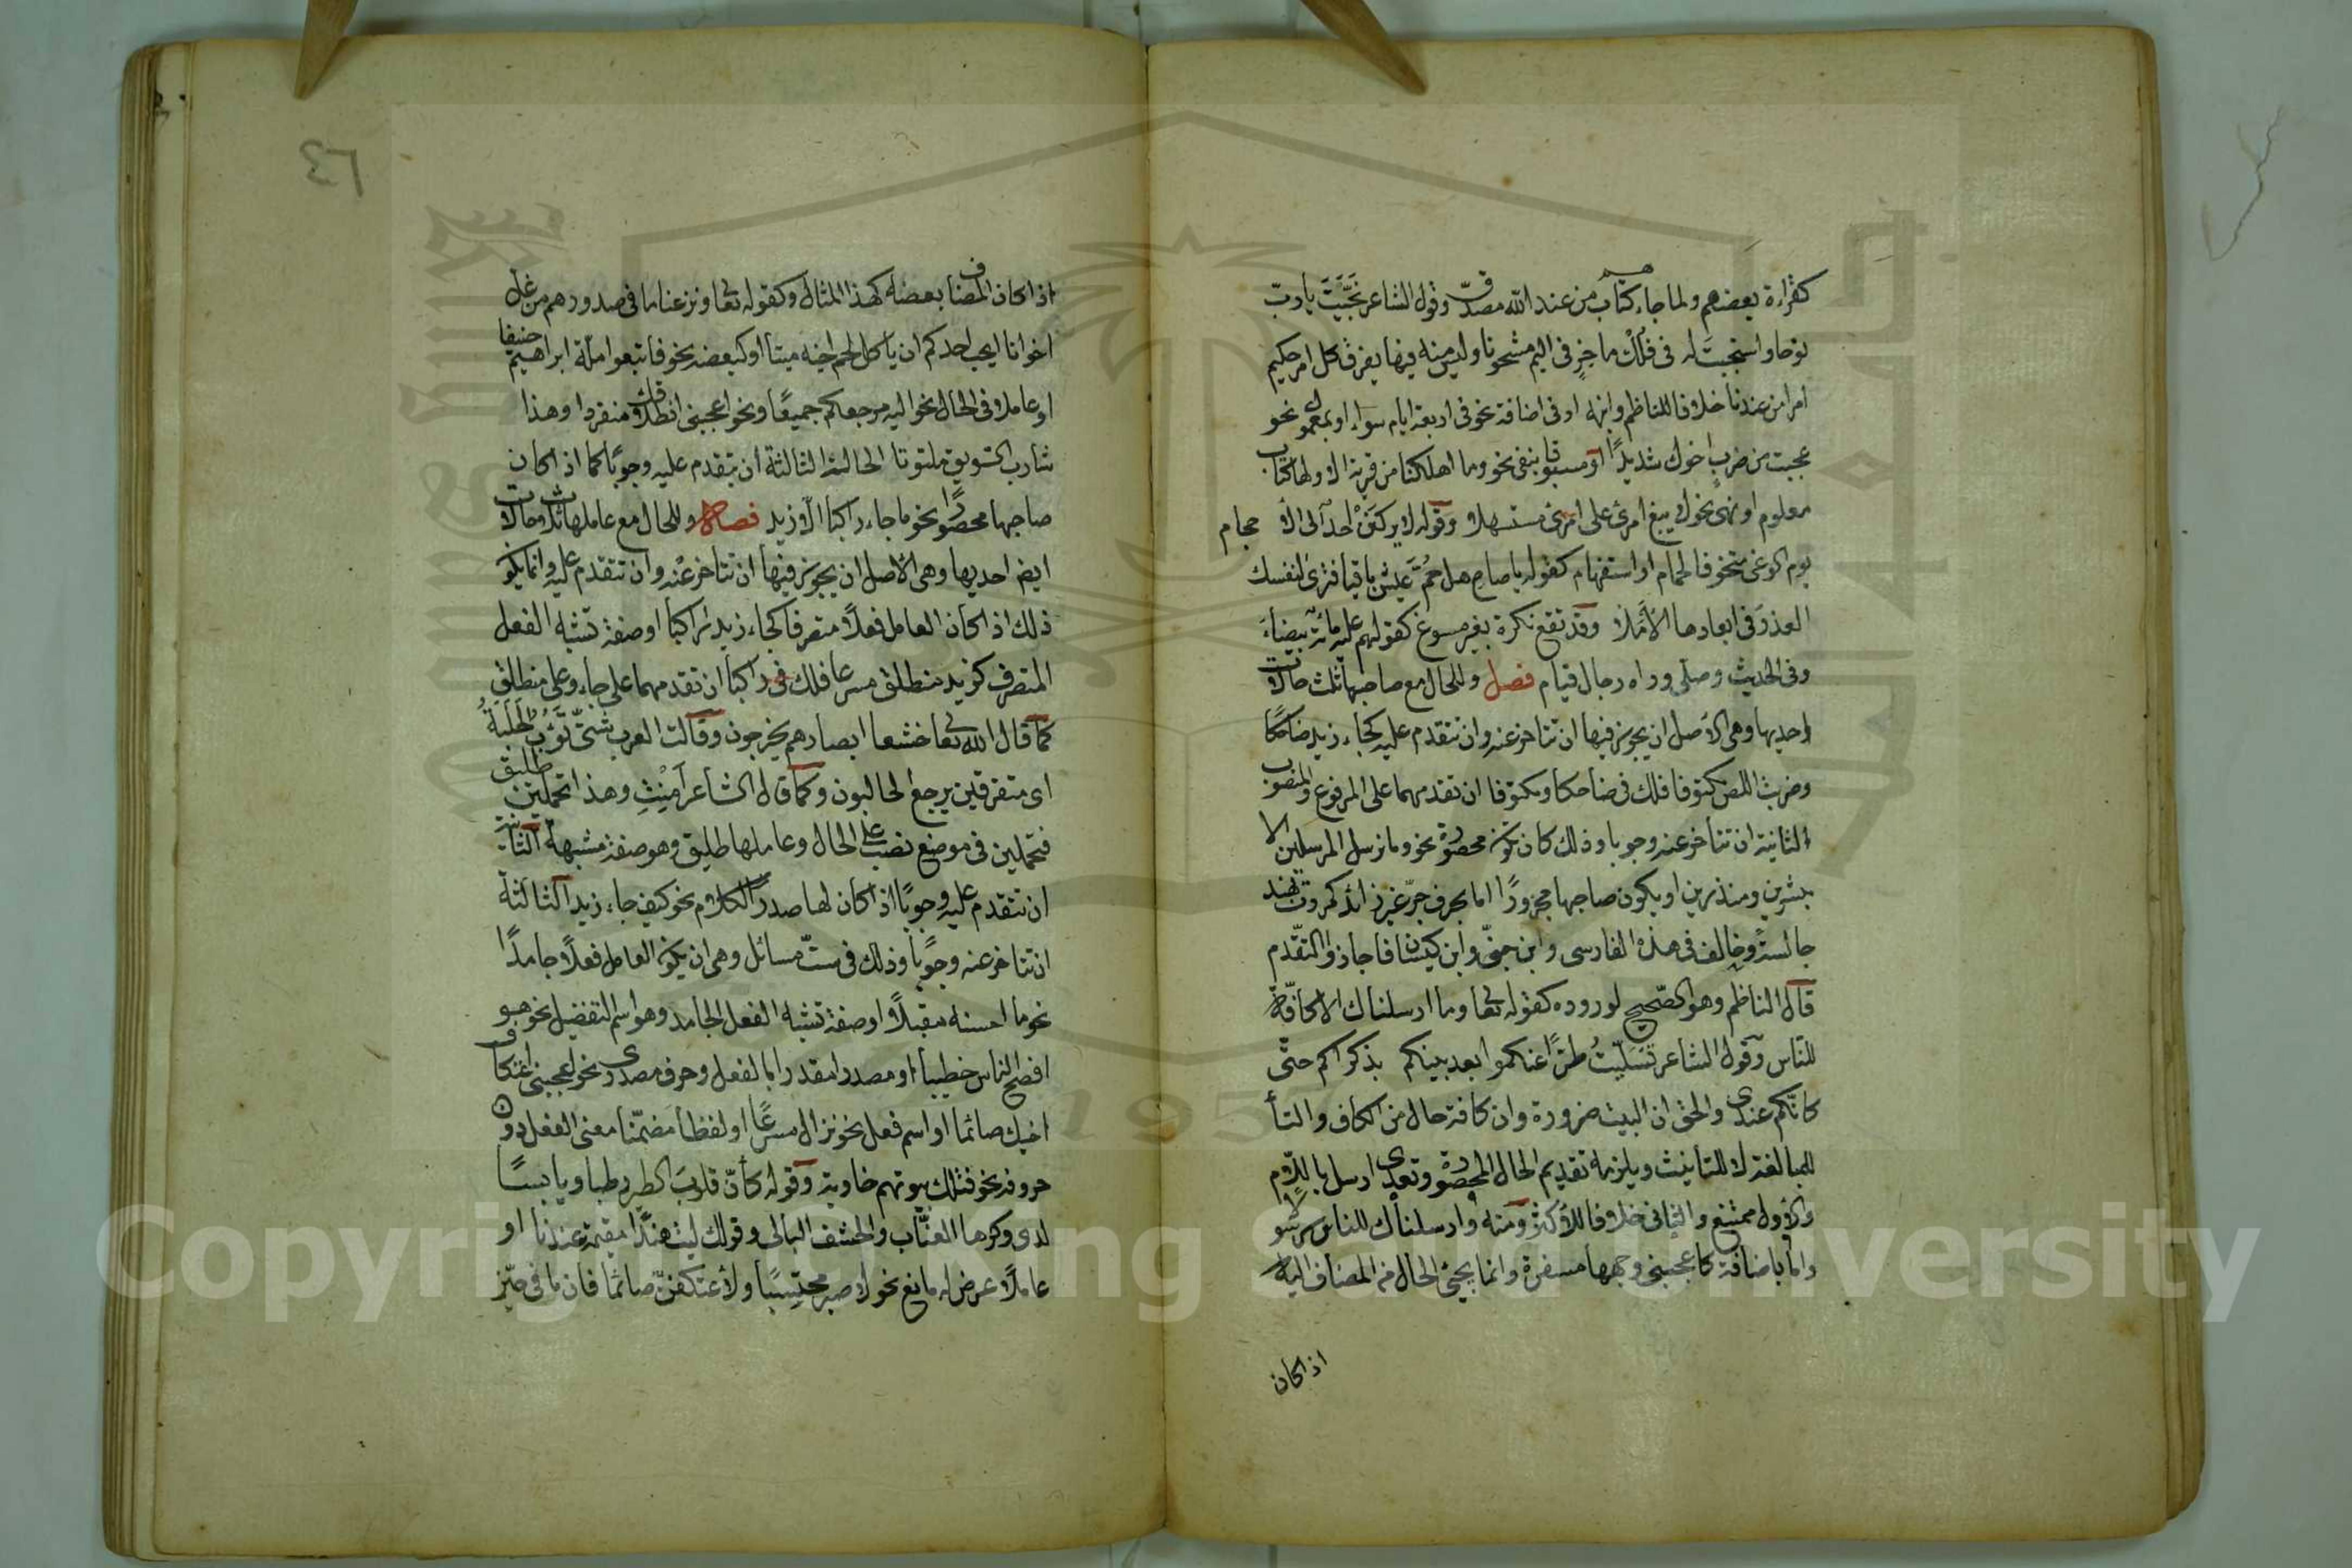 كقراءة بعضهم ولما جاءهم كتاب من عند الله مصدقا وقول الشاعر نَجَّيْتَ يا ربّ
نوحا واستجبتَ له في فُلُكٍ ماخِرٍ في اليم مشحونا وليس منه فيها يفرق كل امر حكيم
امرا من عندنا خلافا للناظم وابنه او في اضافة نحو في اربعة ايام سواء او بمعمول نحو
عجبت من ضربٍ اخوك شديدًا او مسبوقا بنفي نحو وما اهلكنا من قرية الا ولها كتاب
معلوم او نهي نحو لا يبغ امرئ على امرئ مستسهلا وقوله لا يركنَنْ احدٌ الى الا حجام
يوم الوغى متخوفا لحمام او استفهام كقوله يا صاح هل حُمَّ عيش باقيا فترى لنفسك
العذرَ في ابعادها الاَمَلا وقد تقع نكرة بغير مسوغ كقولهم عليه مائة بيضاءَ
وفي الحديث وصلى وراه رجال قيام فصل وللحال مع صاحبها ثلث حالات
احديها وهي الاصل ان يجوز فيها ان تتاخر عنه وان تتقدم عليه كجاء زيد ضاحكًا
وضربت اللص مكتوفا فلك في ضاحكا ومكتوفا ان تقدمهما على المرفوع والمنصوب
الثانية ان تتاخر عنه وجوبا وذلك كان تكون محصورة نحو وما نرسل المرسلين الا
مبشرين ومنذرين او يكون صاحبها مجرورًا اما بحرف جرّ غير زائد كمررت بهند
جالسة وخالف في هذه الفارسي وابن جنّي وابن كيسان فاجازوا التقدّم
قال الناظم وهو الصّحيح لوروده كقوله تعا وما ارسلناك الا كافّة
للناس وقول الشاعر تَسَلّيتُ طرّا عنكموا بعد بينكم بذكراكم حتّى
كانّكم عندى والحق ان البيت ضرورة وان كافة حال من الكاف والتاء
للمبالغة لا للتانيث ويلزمه تقديم الحال المحصورة وتعدى ارسل باللّام
والاول ممتنع والثاني خلاف الاكثر ومنه وارسلناك للناس رسولا
واما باضافة كاعجبني وجهها مسفرة وانما يجئ الحال من المضاف اليه
اذا كان
٤٦
اذا كان المضاف بعضه كهذا المثال وكقوله تعا ونزعنا ما في صدورهم من غل
اخوانا ايحب احدكم ان ياكل لحم اخيه ميتا او كبعضه نحو فاتبعوا ملّة ابراهيم حنيفا
او عاملا في الحال نحو اليه مرجعكم جميعًا ونحو اعجبني انطلاقك منفردا وهذا
شارب السويق ملتوتا الحالة الثالثة ان يتقدم عليه وجوبًا كما اذا كان
صاحبها محصورًا نحو ما جاء راكبا الّا زيد فصل وللحال مع عاملها ثلاث حالات
ايضا احديها وهي الاصل ان يجوز فيها ان تتاخر عنه وان تتقدم عليه وانما يكون
ذلك اذا كان العامل فعلًا متصرفا كجاء زيد راكبا او صفة تشبه الفعل
المتصرف كزيد منطلق مسرعا فلك في راكبا ان تقدمهما على جاء وعلى منطلق
كما قال الله تعا خشعا ابصارهم يخرجون وقالت العرب شتّى تَؤُبُ الحلَبةُ
اى متفرقين يرجع الحالبون وكما قال الشاعر اَمِنْتِ وهذا تحملين طليق
فتحملين في موضع نصب على الحال وعاملها طليق وهو صفة مشبهة الثانية
ان تتقدم عليه وجوبًا اذا كان لها صدر الكلام نحو كيف جاء زيد الثالثة
ان تتاخر عنه وجوبًا وذلك في ستّ مسائل وهي ان يكون العامل فعلًا جامدًا
نحو ما احسنه مقبلًا او صفة تشبه الفعل الجامد وهو اسم التفضيل نحو هو
افصح الناس خطيبا او مصدرا مقدرا بالفعل وحرف مصدرى نحو اعجبني اعتكاف
اخيك صائما او اسم فعل نحو نزال مسرعًا او لفظا مضمّنا معنى الفعل دون
حروفه نحو فتلك بيوتهم خاوية وقوله كأنّ قلوبَ الطير رطبا ويابسًا
لدى وكرها العنّاب والحشف البالى وقولك ليت هندًا مقيمة عندنا او
عاملًا عرض له مانع نحو لاصبر محتسِبًا ولأعتكفنّ صائمًا فان ما في حيّز
Copyright © King Saud University
1957